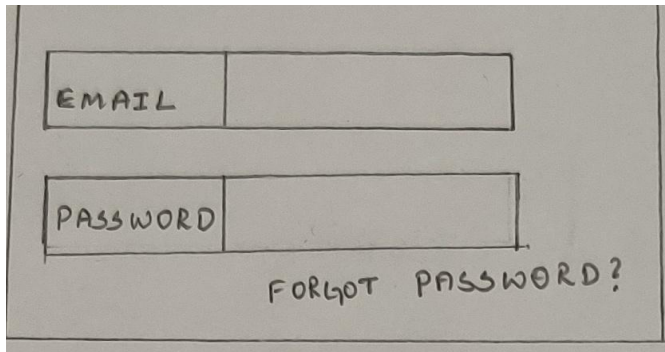 EMAIL
PASSWORD
FORGOT PASSWORD?